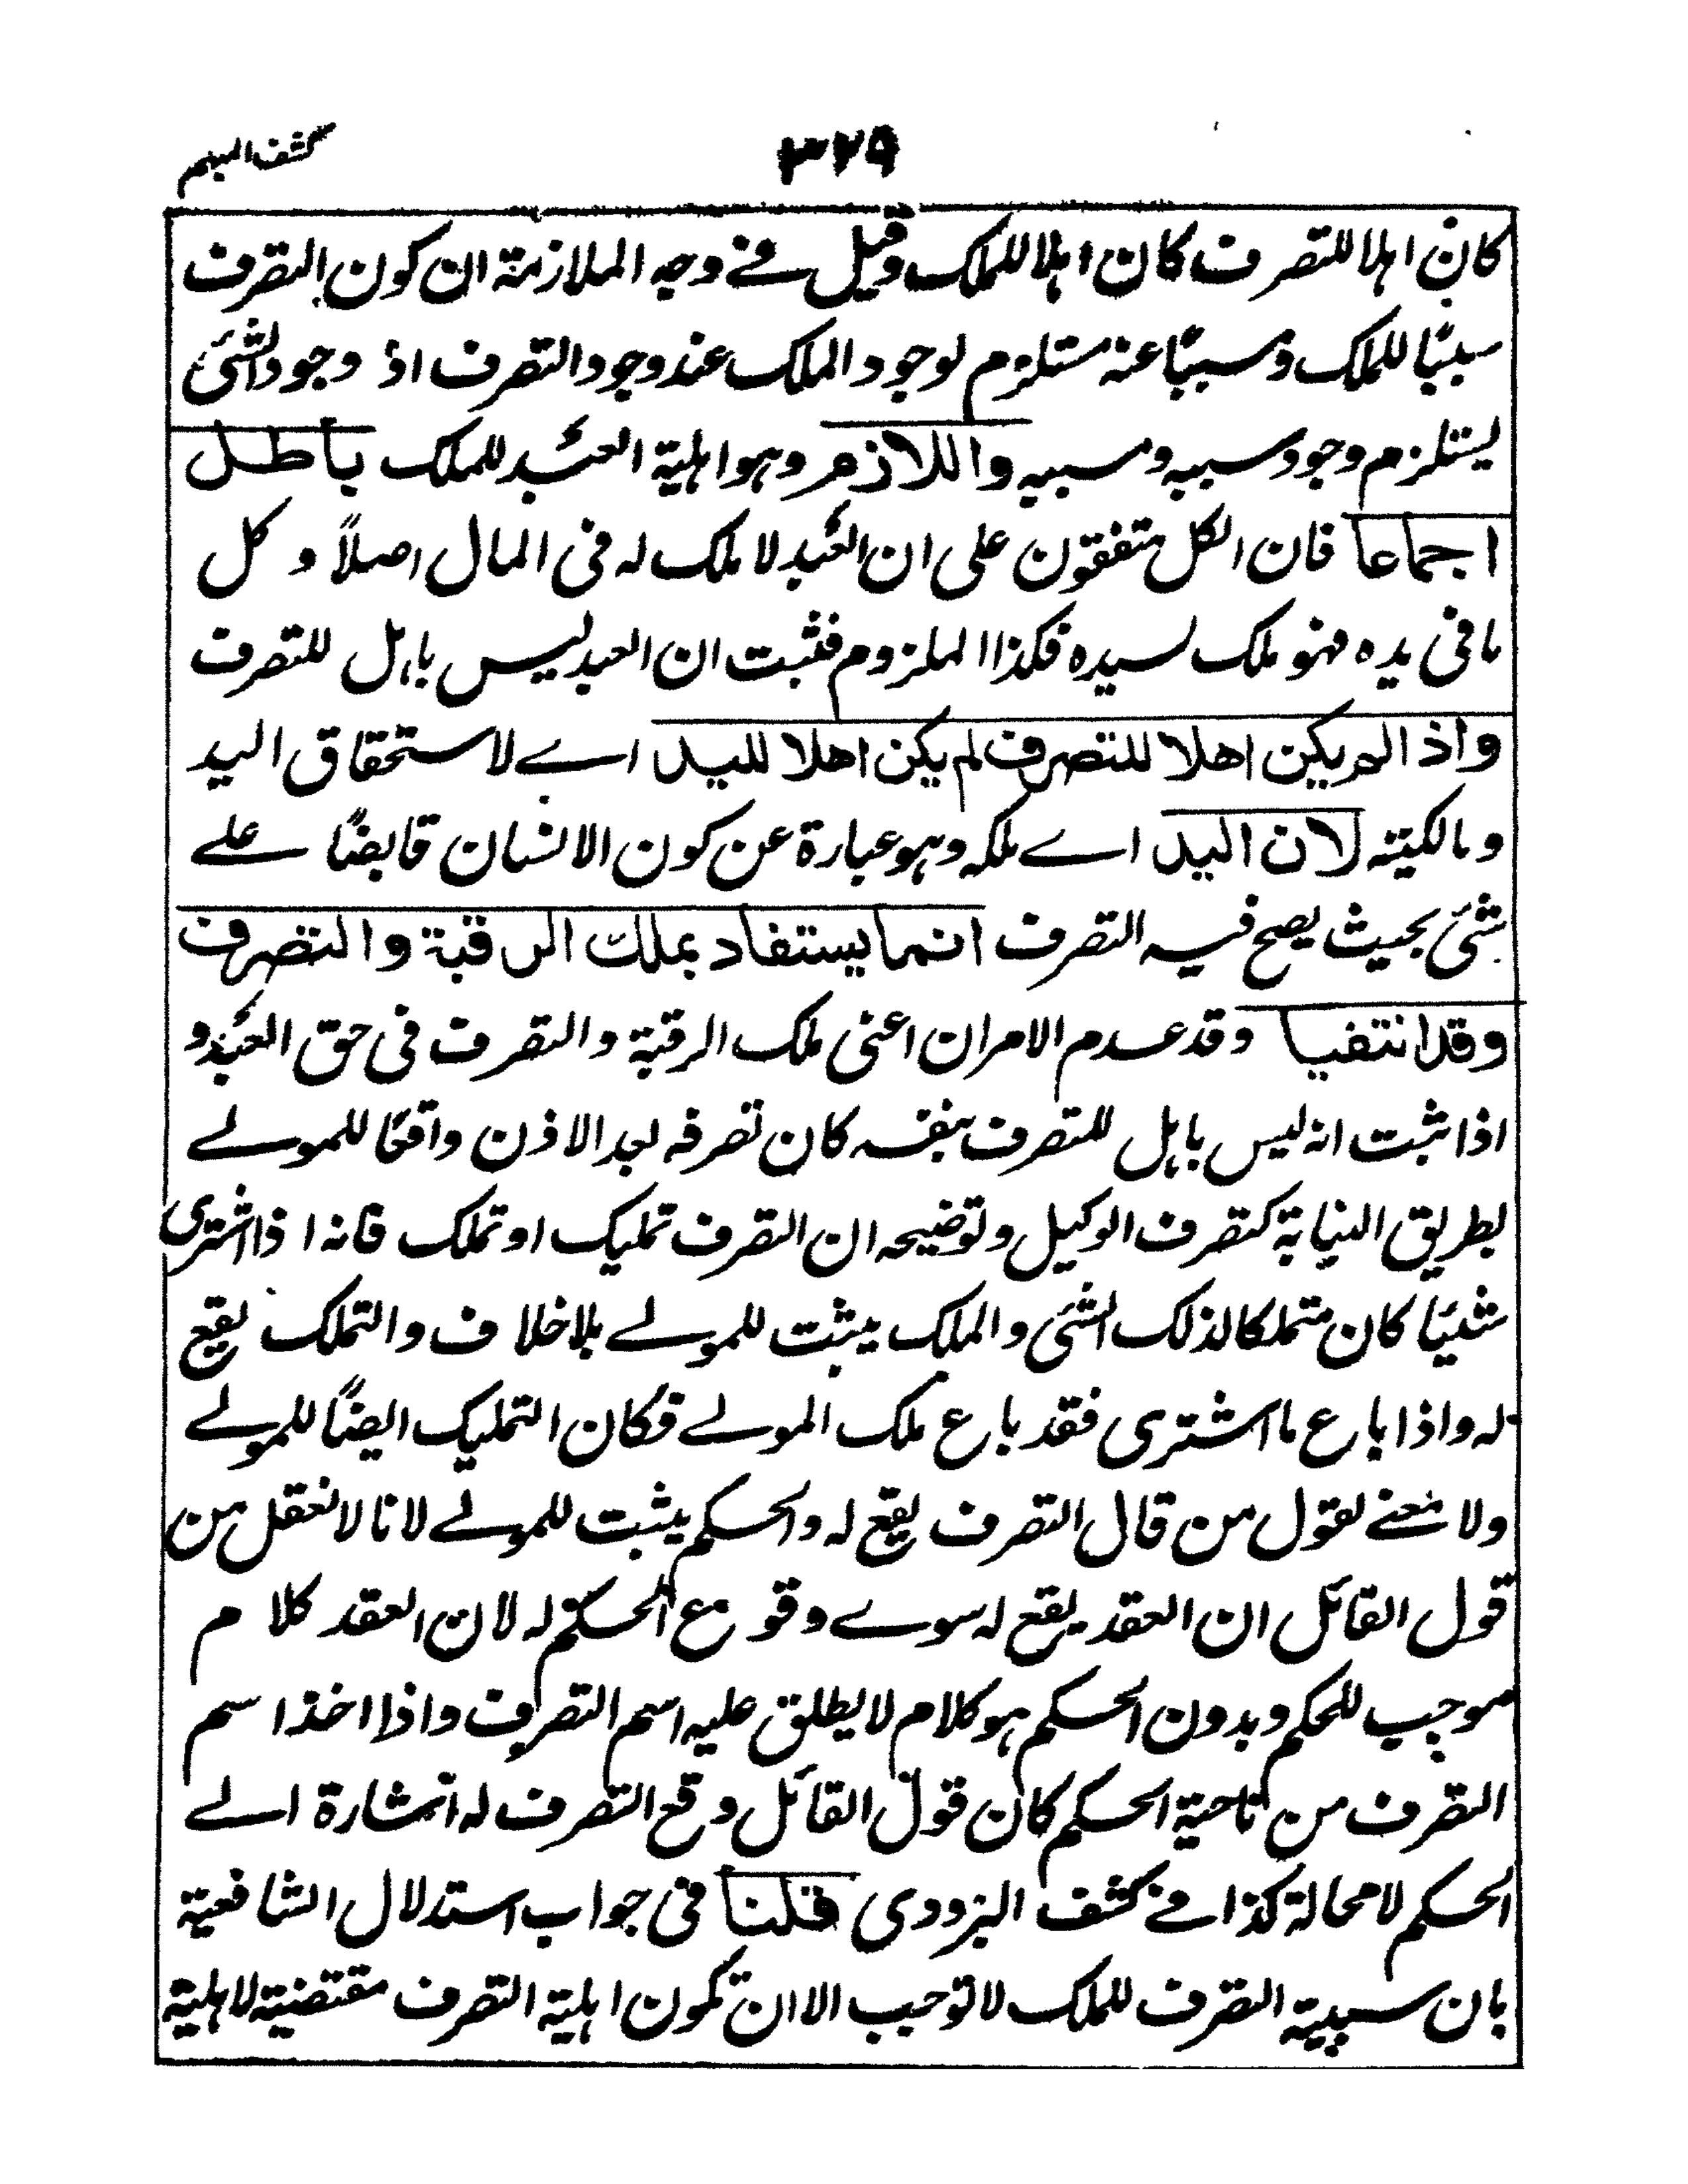 كشف المبهم
٣٢٩
كان اهلا للتصرف كان اهلا للملك وقيل في وجه الملازمة ان كون التصرف
سببًا للملك ومسببًا عنه مستلزم لوجود الملك عند وجود التصرف اذ وجود الشئ
يستلزم وجود سببه ومسببه واللازم وهو اهلية العبد للملك باطل
اجماعا فان الكل متفقون على ان العبد لا ملك له فى المال اصلاً و كل
ما فى يده فهو ملك لسيده فكذا الملزوم فثبت ان العبد ليس باهل للتصرف
واذا لم يكن اهلا للتصرف لم يكن اهلا لليد اے لاستحقاق اليد
ومالكيته لان اليد اے ملكه وهو عبارة عن كون الانسان قابضًا علے
شئ بحيث يصح فيه التصرف انما يستفاد بملك الرقبة والتصرف
وقد انتفيا وقد عدم الامران اعنى ملك الرقبة والتصرف فى حق العبد و
اذا ثبت انه ليس باهل للتصرف بنفسه كان تصرفه بعد الاذن واقعًا للمولے
بطريق النيابة كتصرف الوكيل وتوضيحه ان التصرف تمليك او تملك فانه اذا اشترى
شيئًا كان متملكا لذلك الشئ والملك يثبت للمولے بلا خلاف والتملك يقع
له واذا باع ما اشترى فقد باع ملك المولے فكان التمليك ايضًا للمولے
ولا معنے لقول من قال التصرف يقع له والحكم يثبت للمولے لانا لا نعقل من
قول القائل ان العقد يقع له سوے وقوع الحكم له لان العقد كلام
موجب للحكم وبدون الحكم هو كلام لا يطلق عليه اسم التصرف واذا اخذ اسم
التصرف من ناحية الحكم كان قول القائل وقع التصرف له اشارة الے
الحكم لا محالة كذا في كشف البزدوى قلنا فى جواب استدلال الشافعية
بان سببية التصرف للملك لا توجب الا ان تكون اهلية التصرف مقتضية لاهلية